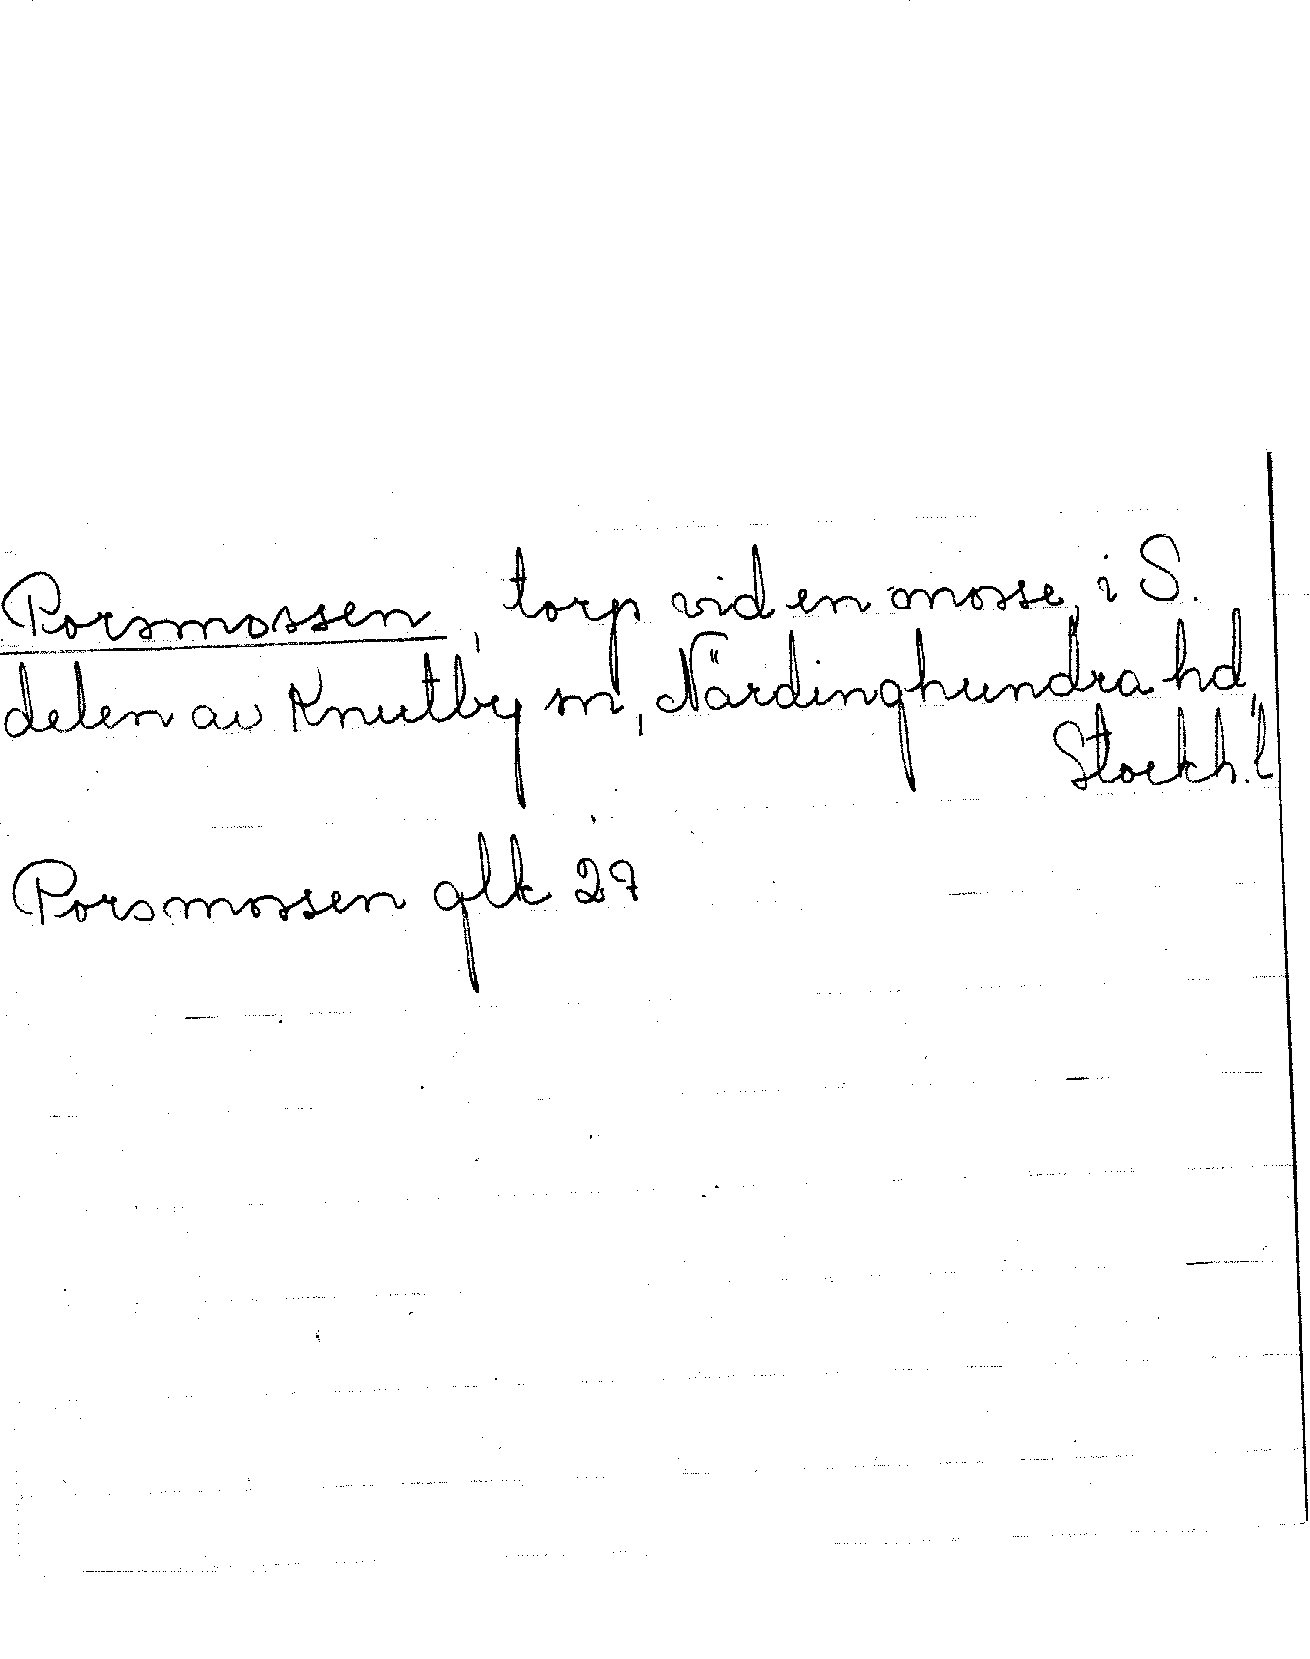 Porsmossen, torp vid en mosse, i S.
delen av Knutby sn, Närdinghundra hd,
Stockh. l
Porsmossen glk 27